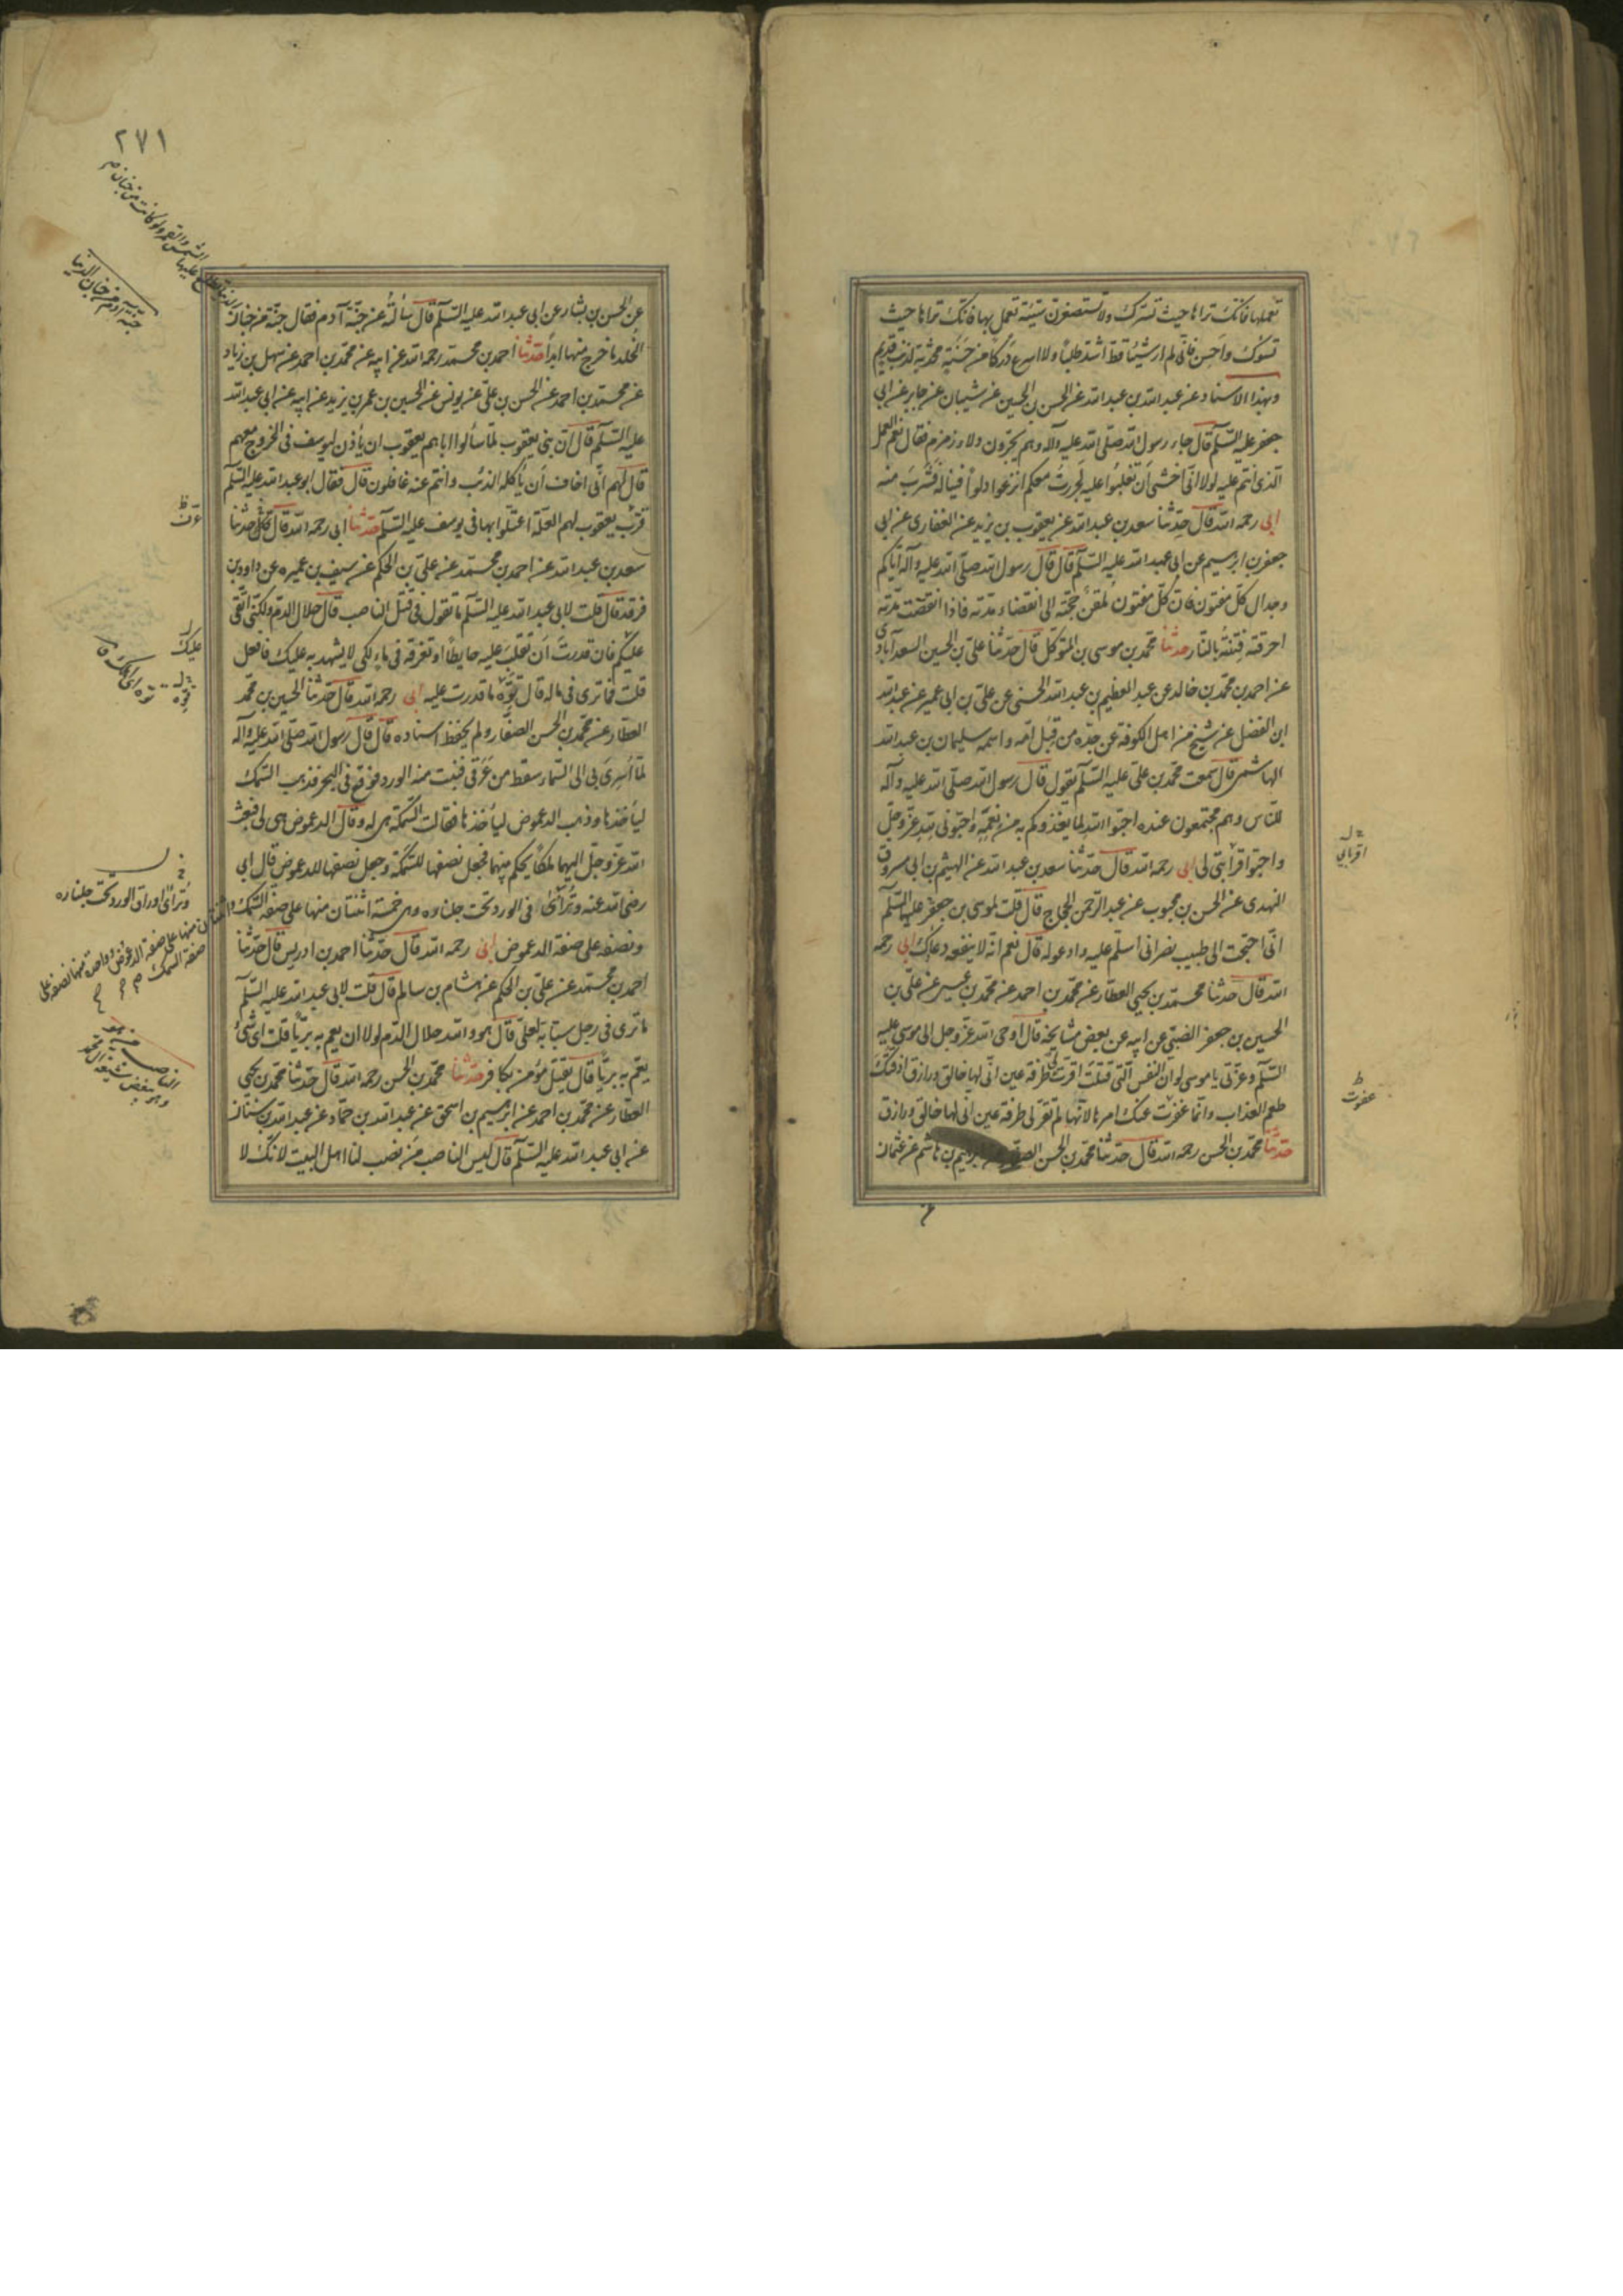 تعملها فانك تراها حيث تسرك ولا تستصغرن سيئة تعمل بها فانك تراها حيث
تسوك واحسن فاني لم ار شيئا قط اشد طلبا ولا اسرع دركا من حسنة محدثة لذنب قديم
وبهذا الاسناد عن عبد الله بن عبد الله عن الحسن بن الحسين عن شيبان عن جابر عن ابي
جعفر عليه السلم قال جاء رسول الله صلى الله عليه وآله وهم يجرون دلاء زمزم فقال نعم العمل
الذي انتم عليه لولا اني اخشى ان تغلبوا عليه لجررت معكم انزعوا دلوا فتناله فشرب منه
ابي رحمه الله قال حدثنا سعد بن عبد الله عن يعقوب بن يزيد عن الغفاري عن ابي
جعفر بن ابرهيم عن ابي عبد الله عليه السلم قال قال رسول الله صلى الله عليه وآله اياكم
وجدال كل مفتون فان كل مفتون ملقن حجته الى انقضاء مدته فاذا انقضت مدته
احرقته فتنته بالنار حدثنا محمد بن موسى بن المتوكل قال حدثنا علي بن الحسين السعدآبادي
عن احمد بن محمد بن خالد عن عبد العظيم بن عبد الله الحسني عن علي بن ابي عمير عن عبد الله
ابن الفضل عن شيخ من اهل الكوفة عن جده من قبل امه واسمه سليمان بن عبد الله
الهاشمي قال سمعت محمد بن علي عليه السلم يقول قال رسول الله صلى الله عليه وآله
للناس وهم مجتمعون عنده احبوا الله لما يغذوكم به من نعمه واحبوني لله عز وجل
واحبوا قرابتي لي ابي رحمه الله قال حدثنا سعد بن عبد الله عن الهيثم بن ابي مسروق
النهدي عن الحسن بن محبوب عن عبد الرحمن الحجاج قال قلت لموسى بن جعفر عليه السلم
اني احتجت الى طبيب نصراني اسلم عليه وادعو له قال نعم انه لا ينفعه دعاؤك ابي رحمه
الله قال حدثنا محمد بن يحيى العطار عن محمد بن احمد عن محمد بن عيسى عن علي بن
الحسين بن جعفر الضبي عن ابيه عن بعض مشايخه قال اوحى الله عز وجل الى موسى عليه
السلم وعزتي يا موسى لو ان النفس التي قتلت اقرت لي طرفة عين اني لها خالق ورازق اذقتك
طعم العذاب وانما عفوت عنك امرها لانها لم تقر لي طرفة عين اني لها خالق ورازق
حدثنا محمد بن الحسن رحمه الله قال حدثنا محمد بن الحسن الصفار عن ابرهيم بن هاشم عن عثمان
اقربائي
عفوت
٢٧١
عن الحسن بن بشار عن ابي عبد الله عليه السلم قال سألته عن جنة آدم فقال جنة من جنان
الخلد ما خرج منها ابدا حدثنا احمد بن محمد رحمه الله عن ابيه عن محمد بن احمد عن سهل بن زياد
عن محمد بن احمد عن الحسن بن علي عن يونس عن الحسين بن عمر بن يزيد عن ابيه عن ابي عبد الله
عليه السلم قال ان بني يعقوب لما سألوا اباهم يعقوب ان يأذن ليوسف في الخروج معهم
قال لهم اني اخاف ان يأكله الذئب وانتم عنه غافلون قال فقال ابو عبد الله عليه السلم
قرب يعقوب لهم العلة اعتلوا بها في يوسف عليه السلم حدثنا ابي رحمه الله قال حدثنا
سعد بن عبد الله عن احمد بن محمد عن علي بن الحكم عن سيف بن عميره عن داود بن
فرقد قال قلت لابي عبد الله عليه السلم ما تقول في قتل الناصب قال حلال الدم ولكني اتقي
عليكم فان قدرت ان تقلب عليه حايطا او تغرقه في ماء لكي لا يشهد به عليك فافعل
قلت فما ترى في ماله قال توه ما قدرت عليه ابي رحمه الله قال حدثنا الحسين بن محمد
العطار عن محمد بن الحسن الصفار ولم يحفظ اسناده قال قال رسول الله صلى الله عليه وآله
لما اسري بي الى السماء سقط من عرقي فنبت منه الورد فوقع في البحر فذهب السمك
ليأخذها وذهب الدعموص ليأخذها فقالت السمكة هي لي وقال الدعموص هي لي فبعث
الله عز وجل اليهما ملكا يحكم بينهما فجعل نصفها للسمكة وجعل نصفها للدعموص قال ابي
رضي الله عنه وترى في الورد تحت جلناره وهي خمسة اثنتان منها على صفة السمك
ونصفه على صفة الدعموص ابي رحمه الله قال حدثنا احمد بن ادريس قال حدثنا
احمد بن محمد عن علي بن الحكم عن هشام بن سالم قال قلت لابي عبد الله عليه السلم
ما ترى في رجل سبابة لعلي قال هو والله حلال الدم لولا ان يعم به بريا قلت اي شيء
يعم به بريا قال يقتل مؤمن بكافر حدثنا محمد بن الحسن رحمه الله قال حدثنا محمد بن يحيى
العطار عن محمد بن احمد عن ابرهيم بن اسحق عن عبد الله بن حماد عن عبد الله بن سنان
عن ابي عبد الله عليه السلم قال ليس الناصب من نصب لنا اهل البيت لانك لا
جنة آدم من جنان الدنيا
عليك
توه اي اهلك
وترى اوراق الورد تحت جلناره
اثنتان منها على صفة الدعموص وواحدة منها نصفه على
صفة السمك
الناصب من هو
وهو يبغض شيعة آل محمد